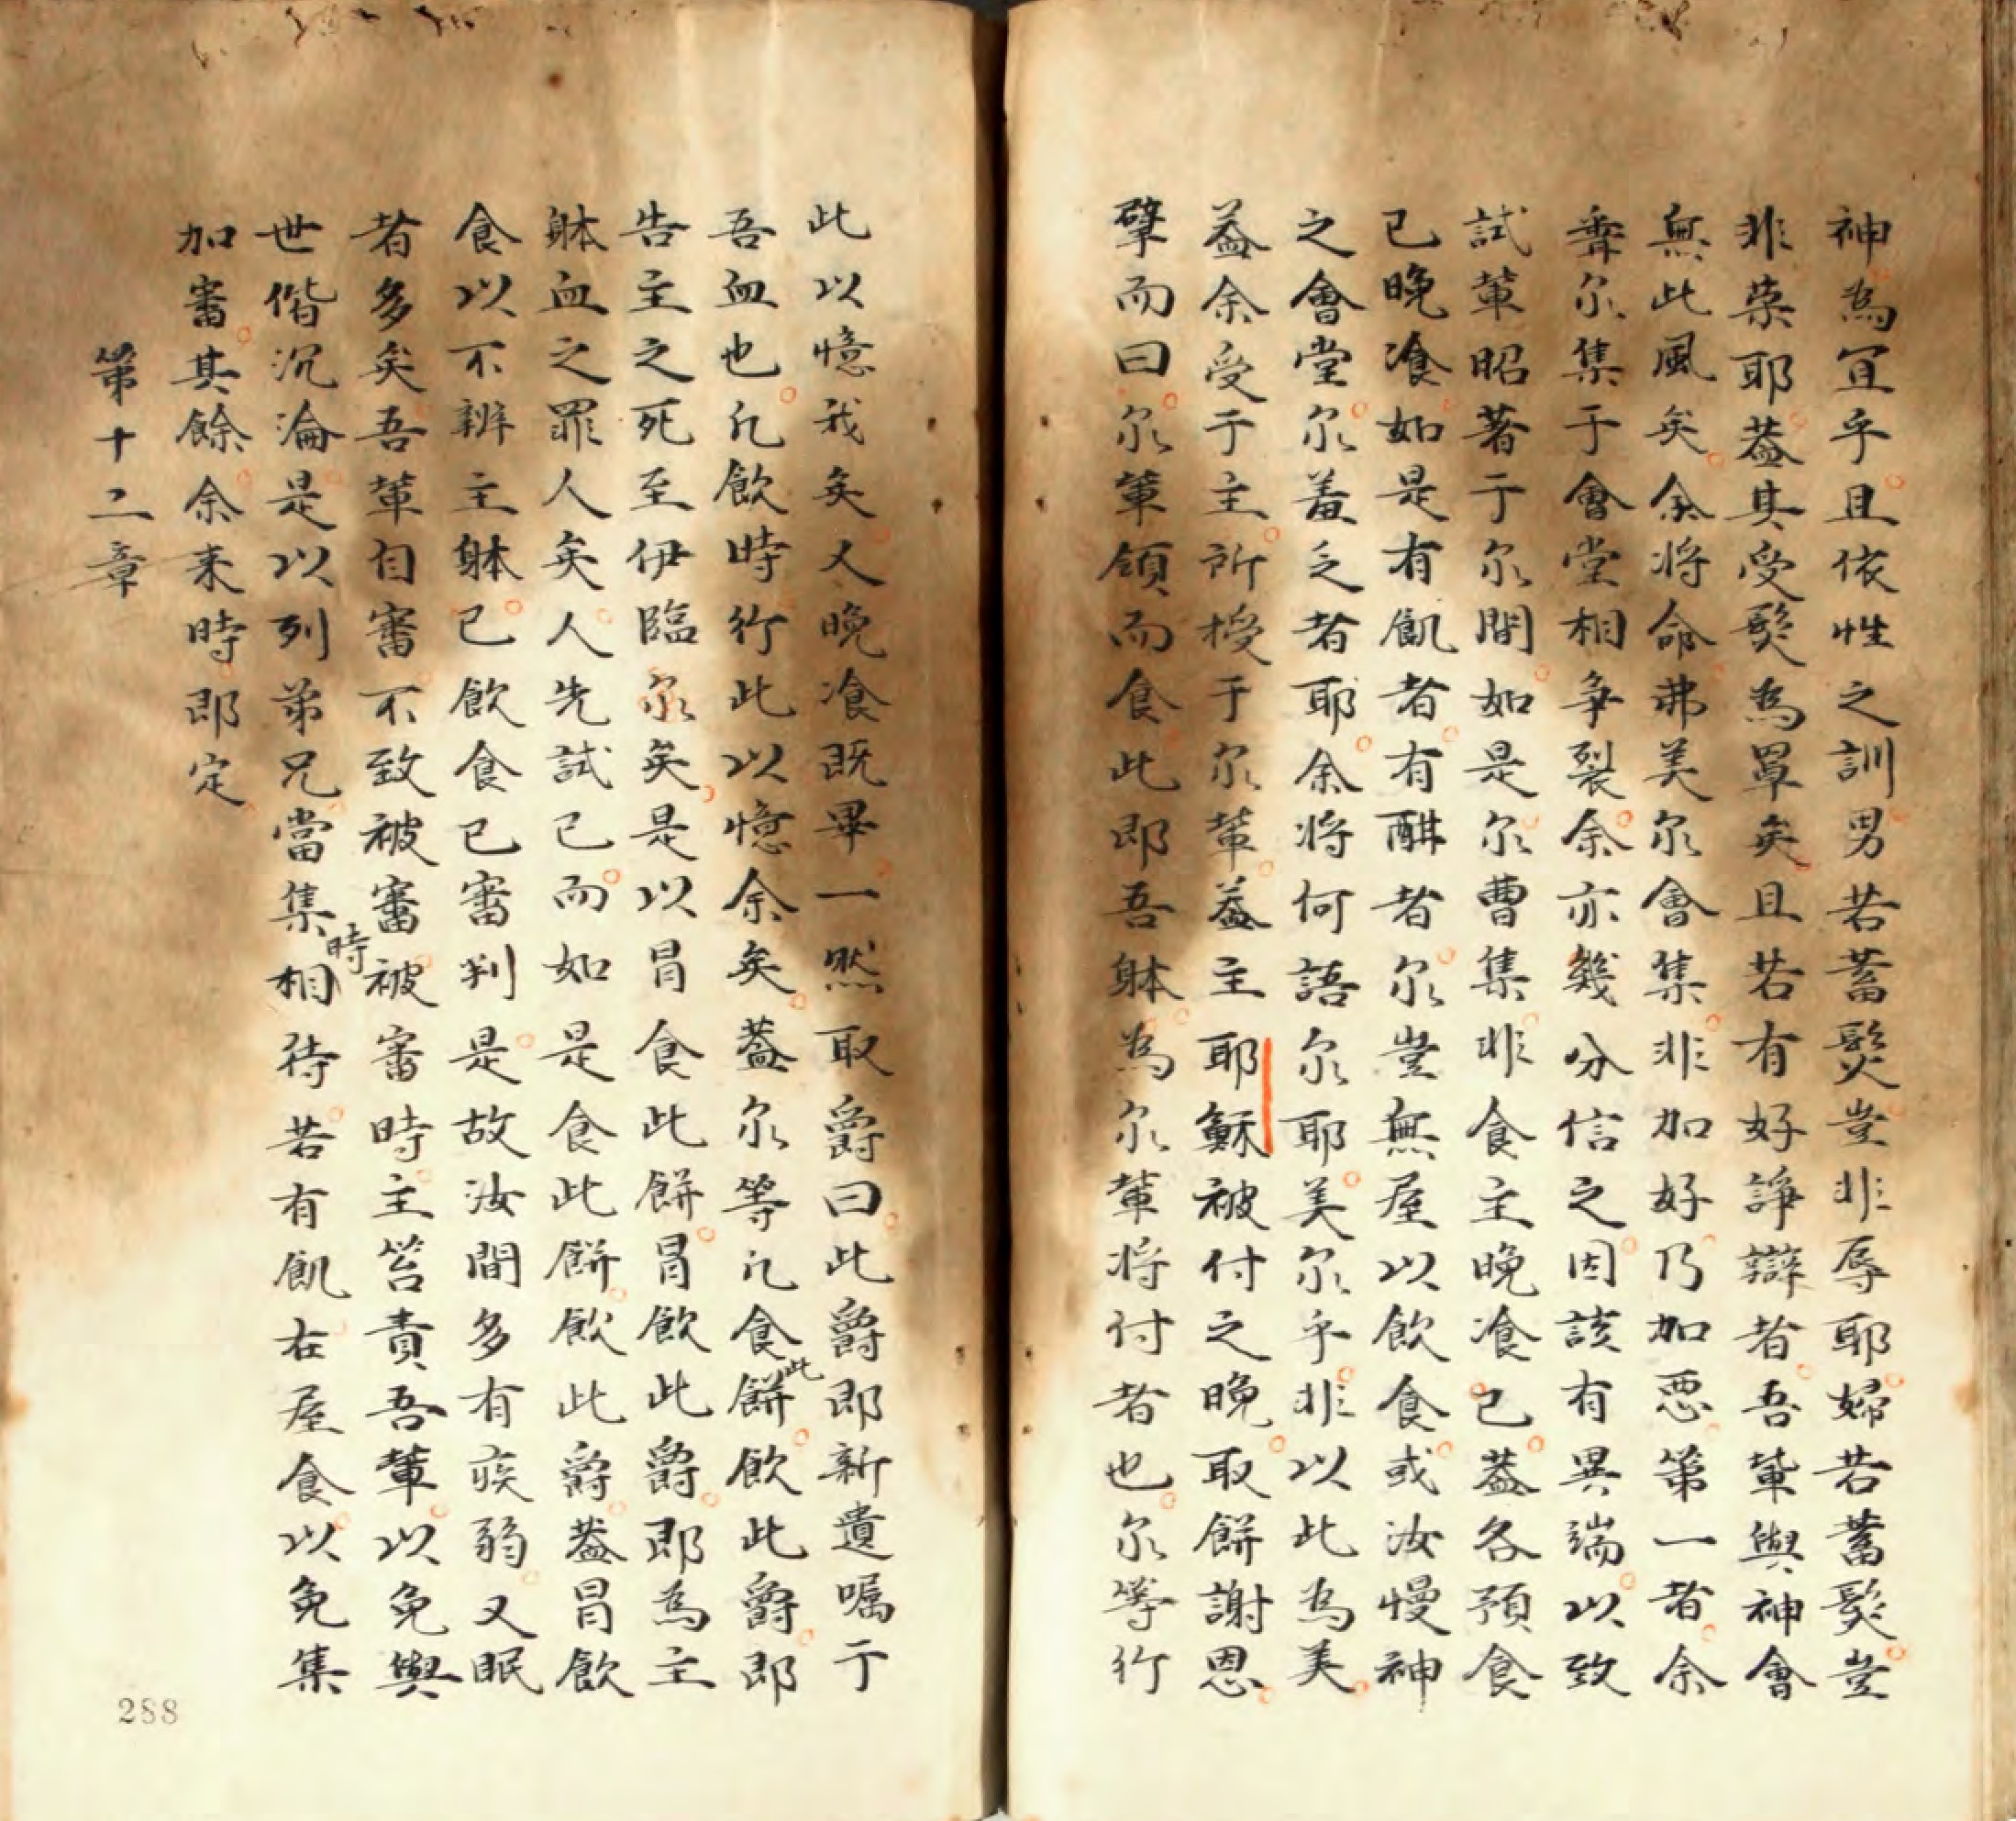 神為宜乎且依性之訓男若蓄髮豈非辱耶婦若蓄髮豈
非榮耶蓋其受髮為罩矣且若有好諍辯者吾輩與神會
無此風矣余將命弗美尔會集非加好乃加惡第一者余
聞尔集于會堂相爭裂余亦幾分信之因該有異端以致
試輩昭著于尔間如是尔曹集非食主晚飡已蓋各預食
已晚飡如是有飢者有酣者尔豈無屋以飲食或汝慢神
之會堂尔羞乏者耶余將何語尔耶美尔乎非以此為美
蓋余受于主所授于尔輩蓋主耶穌被付之晚取餅謝恩
擘而曰尔輩領而食此即吾躰為尔輩將付者也尔等行
此以憶我矣又晚飡既畢一然取爵曰此爵即新遺囑于
吾血也凢飲時行此以憶余矣蓋尔等凢食此餅飲此爵即
告主之死至伊臨尔矣是以冒食此餅冒飲此爵即為主
躰血之罪人矣人先試己而如是食此餅飲此爵蓋冒飲
食以不辨主躰已飲食己審判是故汝間多有疾弱又眠
者多矣吾輩自審不致被審被審時主笞責吾輩以免與
世偕沉淪是以列弟兄當集時相待若有飢在屋食以免集
加審其餘余来時即定
第十二章
288